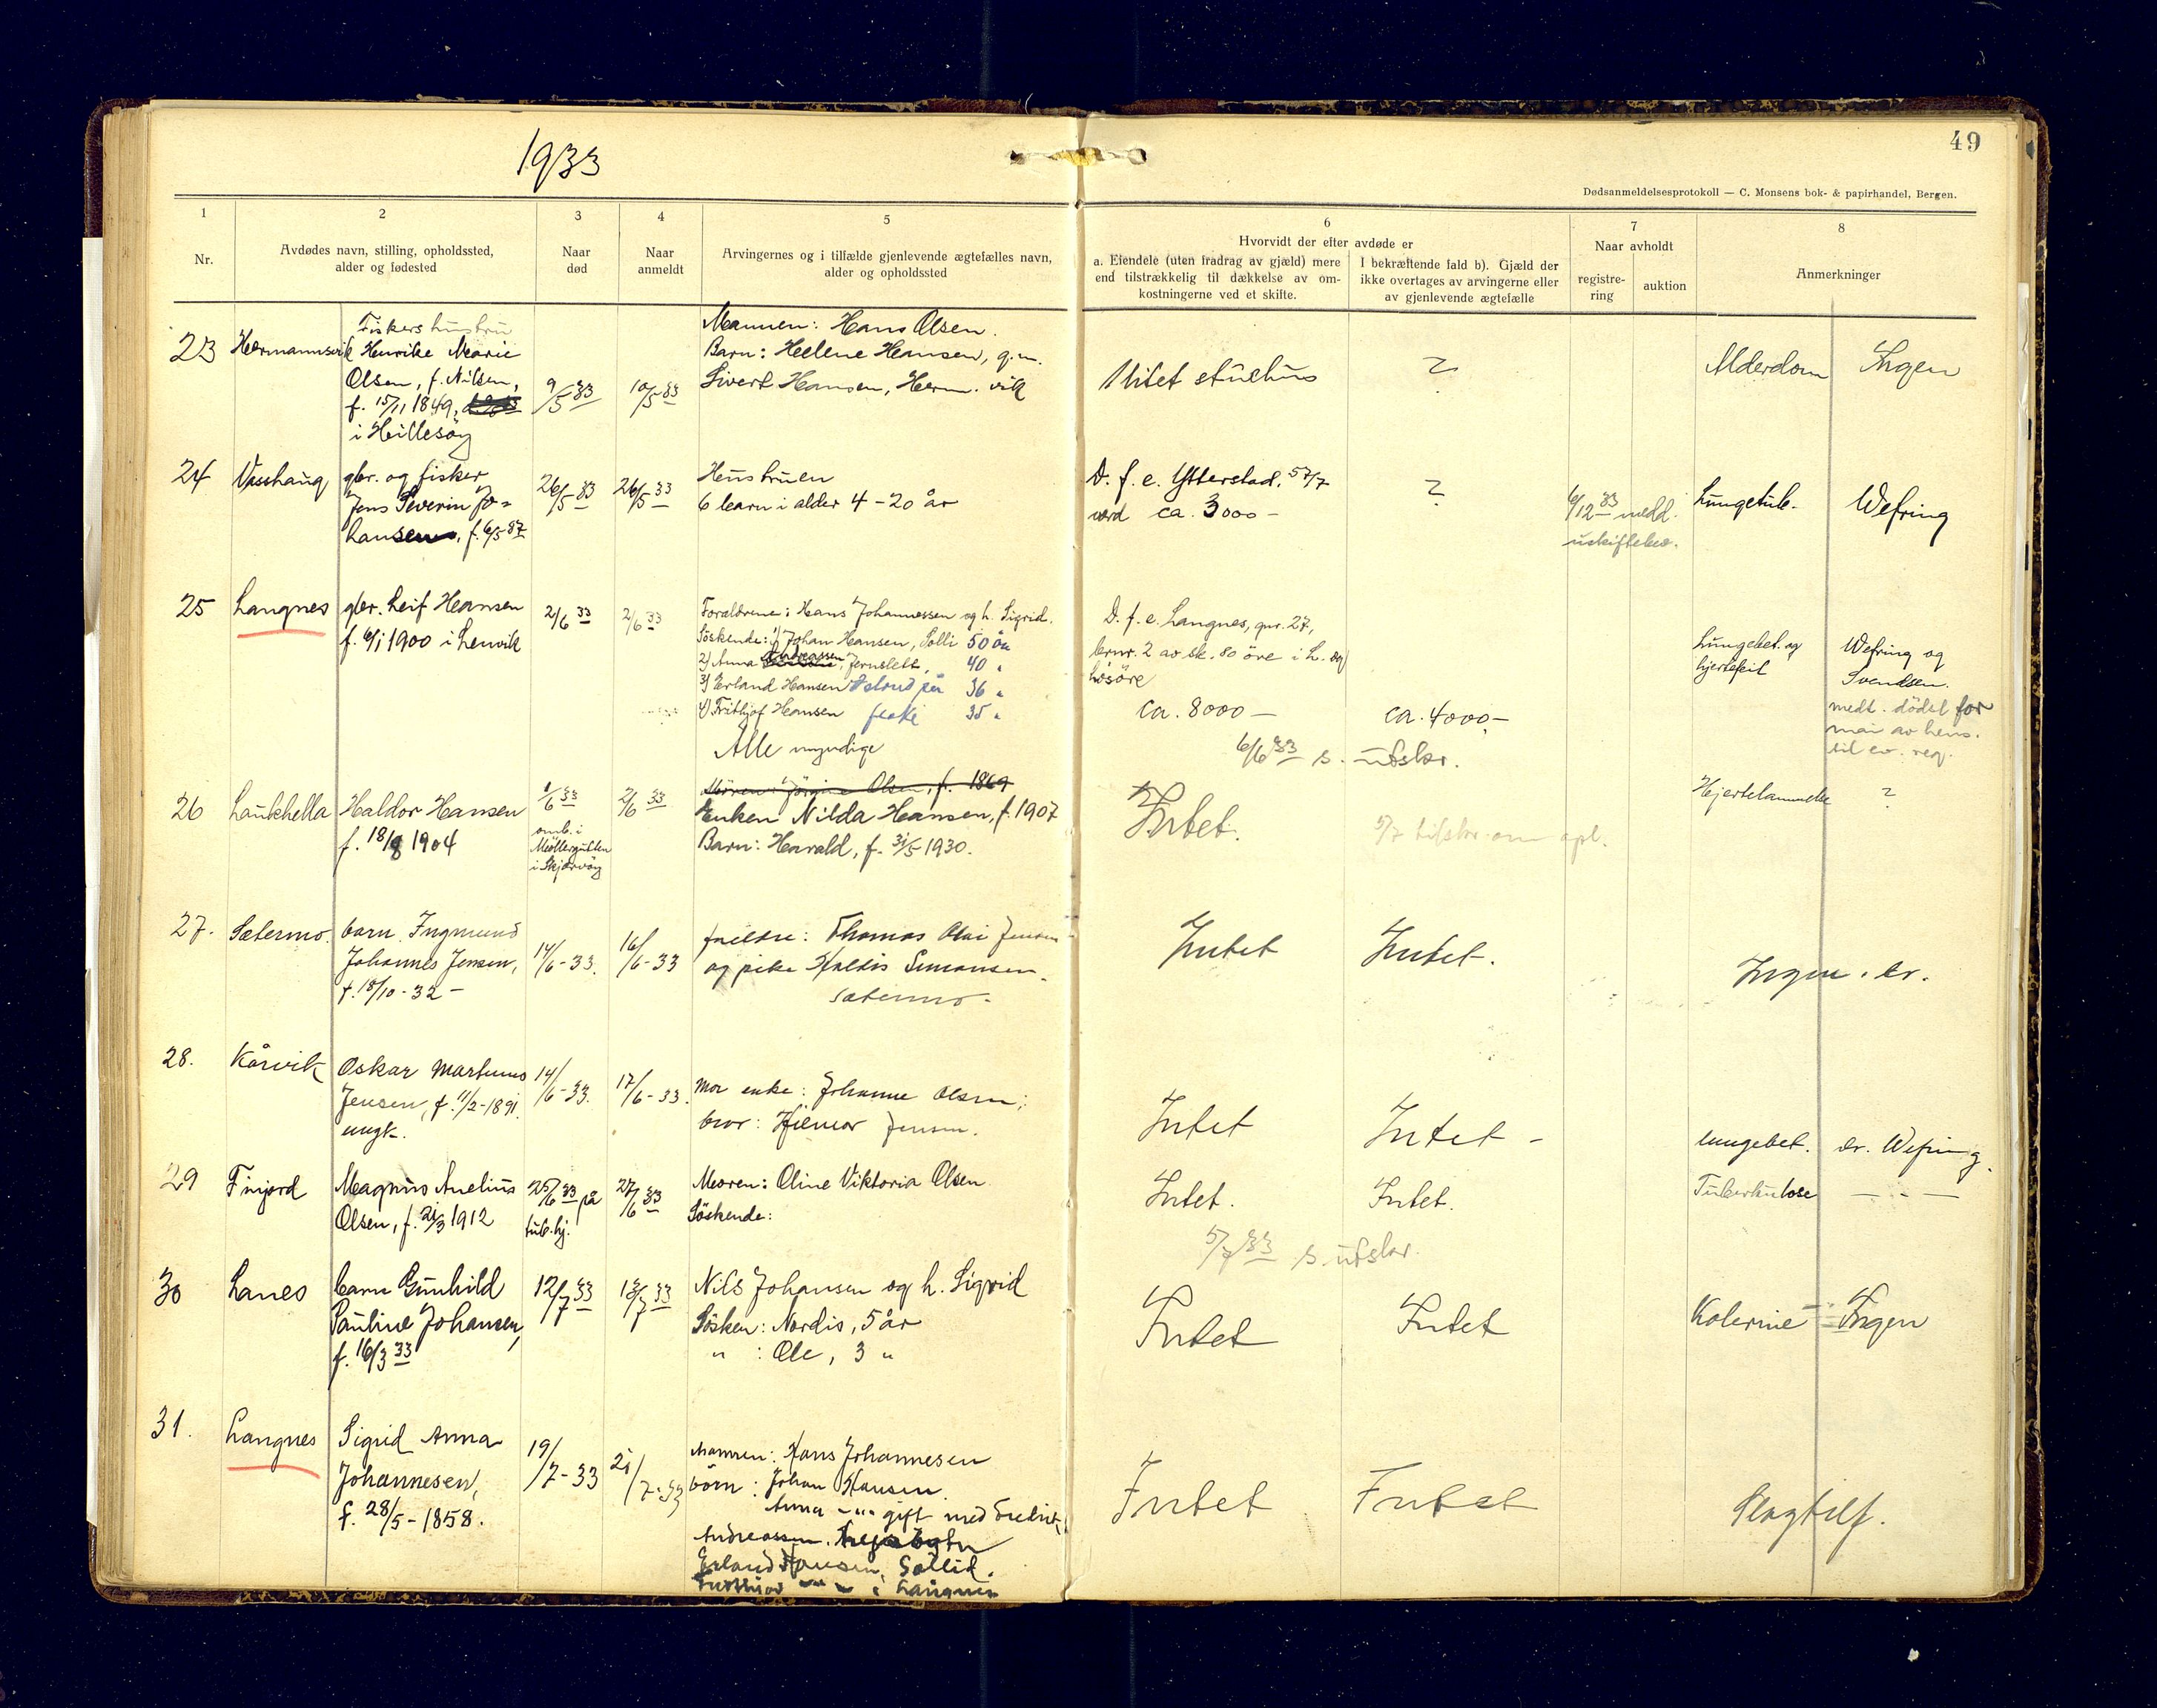 1933
49
Dødsanmeldelsesprotokoll — C. Monsens bok- & papirhandel, Bergen.
1 2 3 4 5 6 7 8
Nr.
Avdødes navn, stilling, opholdssted,
alder og fødested
Naar
død
Naar
anmeldt
Arvingernes og i tilfælde gjenlevende ægtefælles navn,
alder og opholdssted
Hvorvidt der efter avdøde er
a. Eiendele (uten fradrag av gjæld) mere
end tilstrækkelig til dækkelse av om-
kostningerne ved et skifte.
I bekræftende fald b). Gjæld der
ikke overtages av arvingerne eller
av gjenlevende ægtefælle
Naar avholdt
registre-
ring
auktion
Anmerkninger
23 Hermannsvik
Fiskers hustru
Henrike Marie
Olsen, f. Nilsen,
f. 15/11 1849,
i Hillesöy
9/5 33
10/5 33
Mannen: Hans Olsen.
Barn: Helene Hansen, g.m.
Sivert Hansen, Herm. vik
1 litet stuehus
?
Alderdom
Ingen
24
gbr. og fisker
Jens Severin Jo=
hansen, f. 6/5 87
26/5 33
26/5 33
Hustruen
6 barn i alder 4 - 20 år
D. f. e. Ytterstad, 57/7
verd ca. 3000 -
?
6/12 33 medd.
uskiftebev.
Lungetub.
Wefring
25 Langnes
gbr. Leif Hansen
f. 6/1 1900 i Lenvik
2/6 33
2/6 33
Forældrene: Hans Johannessen og h. Sigrid.
Söskende: 1) Johan Hansen, Solli 50 år
2) Anna Andreassen, Jernslett, 40 "
3) Erland Hansen 36 "
4) Frithjof Hansen 35 "
Alle myndige
D. f. e. Langnes, gnr. 27,
brnr. 2 av sk. 80 öre i L. og
lösöre
ca. 8000 -
ca. 4000,-
6/6 33 s. utskr.
Lungebet. og
hjertefeil
Wefring og
Svendsen.
medt. dödsf for
til ev. reg.
26 Laukhella
Haldor Hansen
f. 18/8 1904
1/6 33
omb. i
Möllergutten
i Skjærvöy
2/6 33
Moren: Jörgine Olsen, f. 1869
Enken Nilda Hansen, f. 1907
Barn: Harald, f. 31/5 1930.
Intet.
Hjertelammelse
?
27. Sætermo.
barn Ingmund
Johannes Jensen,
f. 18/10 - 32 -
14/6 - 33.
16/6 - 33
foreldre: Thomas Olai Jensen
og pike Haldis Simonsen.
Sætermo.
Intet
Intet.
Ingen. dr.
28. Kårvik
Oskar Martinus
Jensen, f. 11/2 - 1891.
ungk.
14/6 - 33.
17/6 - 33.
Mor enke: Johanne Olsen;
bror: Hilmar Jensen.
Intet
Intet -
lungebet.
dr. Wefring.
29 Finjord
Magnus Anelius
Olsen, f. 21/3 1912
25/6 33 på
tub.hj.
27/6 33
Moren: Oline Viktoria Olsen
Söskende:
Intet.
Intet.
5/7 33 s. utskr.
Tuberkulose
— " —
30 Lanes
barn Gunhild
Pauline Johansen,
f. 16/3 33
12/7 33
13/7 33
Nils Johansen og h. Sigrid
Sösken: Nordis, 5 år
" : Ole, 3 "
Intet
Intet
Kolerine
Ingen
31. Langnes
Sigrid Anna
Johannesen,
f. 28/5 - 1858.
19/7 - 33
21/7 - 33
Mannen: Hans Johannesen
börn: Johan Hansen
Anna - " - gift med Fredrik
Andreassen.
Erland Hansen, Sollid.
Frithjof - " - , Langnes
Intet
Intet
Slagtilf.